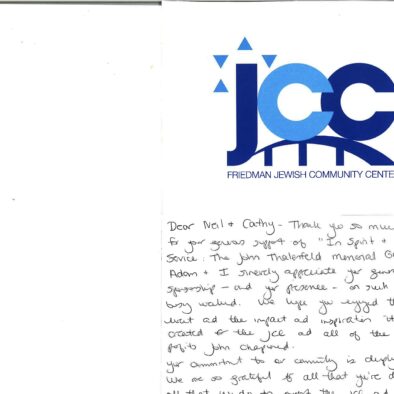 jcc
FRIEDMAN JEWISH COMMUNITY CENTE
Dear Neil + Cathy - Thank you so muc
for your generous support of "In Spirit +
Service: The John Memorial G
Adam + I sincerely appreciate your gener
sponsorship - and your presence - on such
busy weekend. We hope you enjoyed th
event and the impact and inspiration
created for the jcc and all of the
profits John championed.
your commitment to our community is deeply
We are so grateful for all that you're d
all that we do to the jcc and